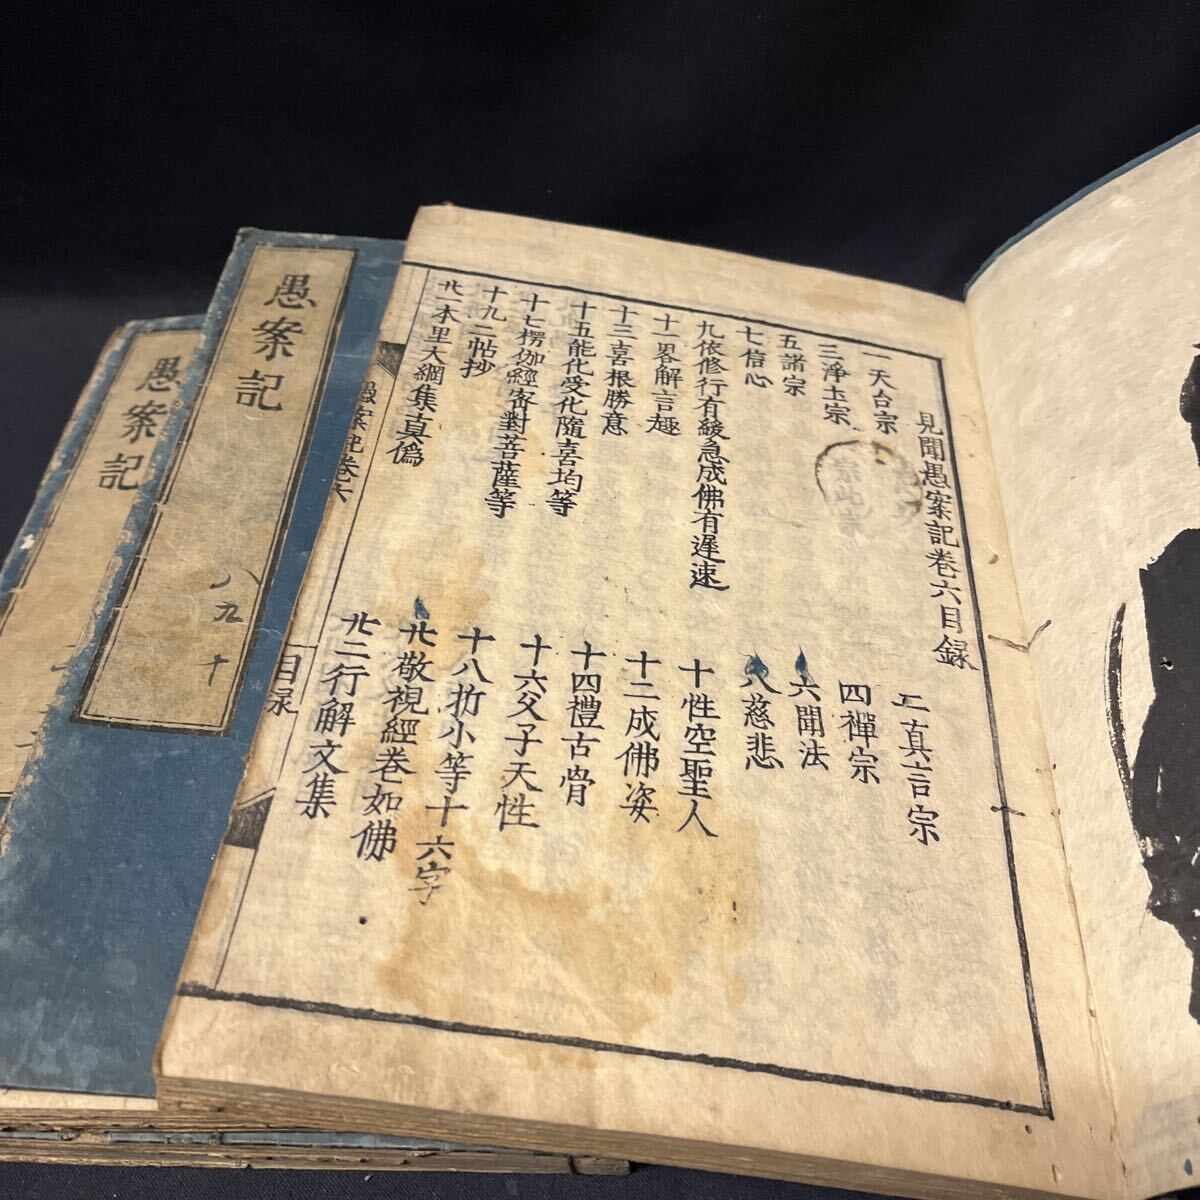 見聞愚案記巻六目録
一天台宗
二真言宗
三淨土宗
四禪宗
五諸宗
六聞法
七信心
八慈悲
九依修行有緩急成佛有遲速
十性空聖人
十一畧解言趣
十二成佛姿
十三喜根勝意
十四禮古骨
十五能化受化隨喜均等
十六父子天性
十七楞伽經密對菩薩等
十八折小等十六字
十九二帖抄
廿敬視經巻如佛
廿一本里大綱集真僞
廿二行解文集
愚案記巻六
目录
愚案記
八
九
十
愚案記